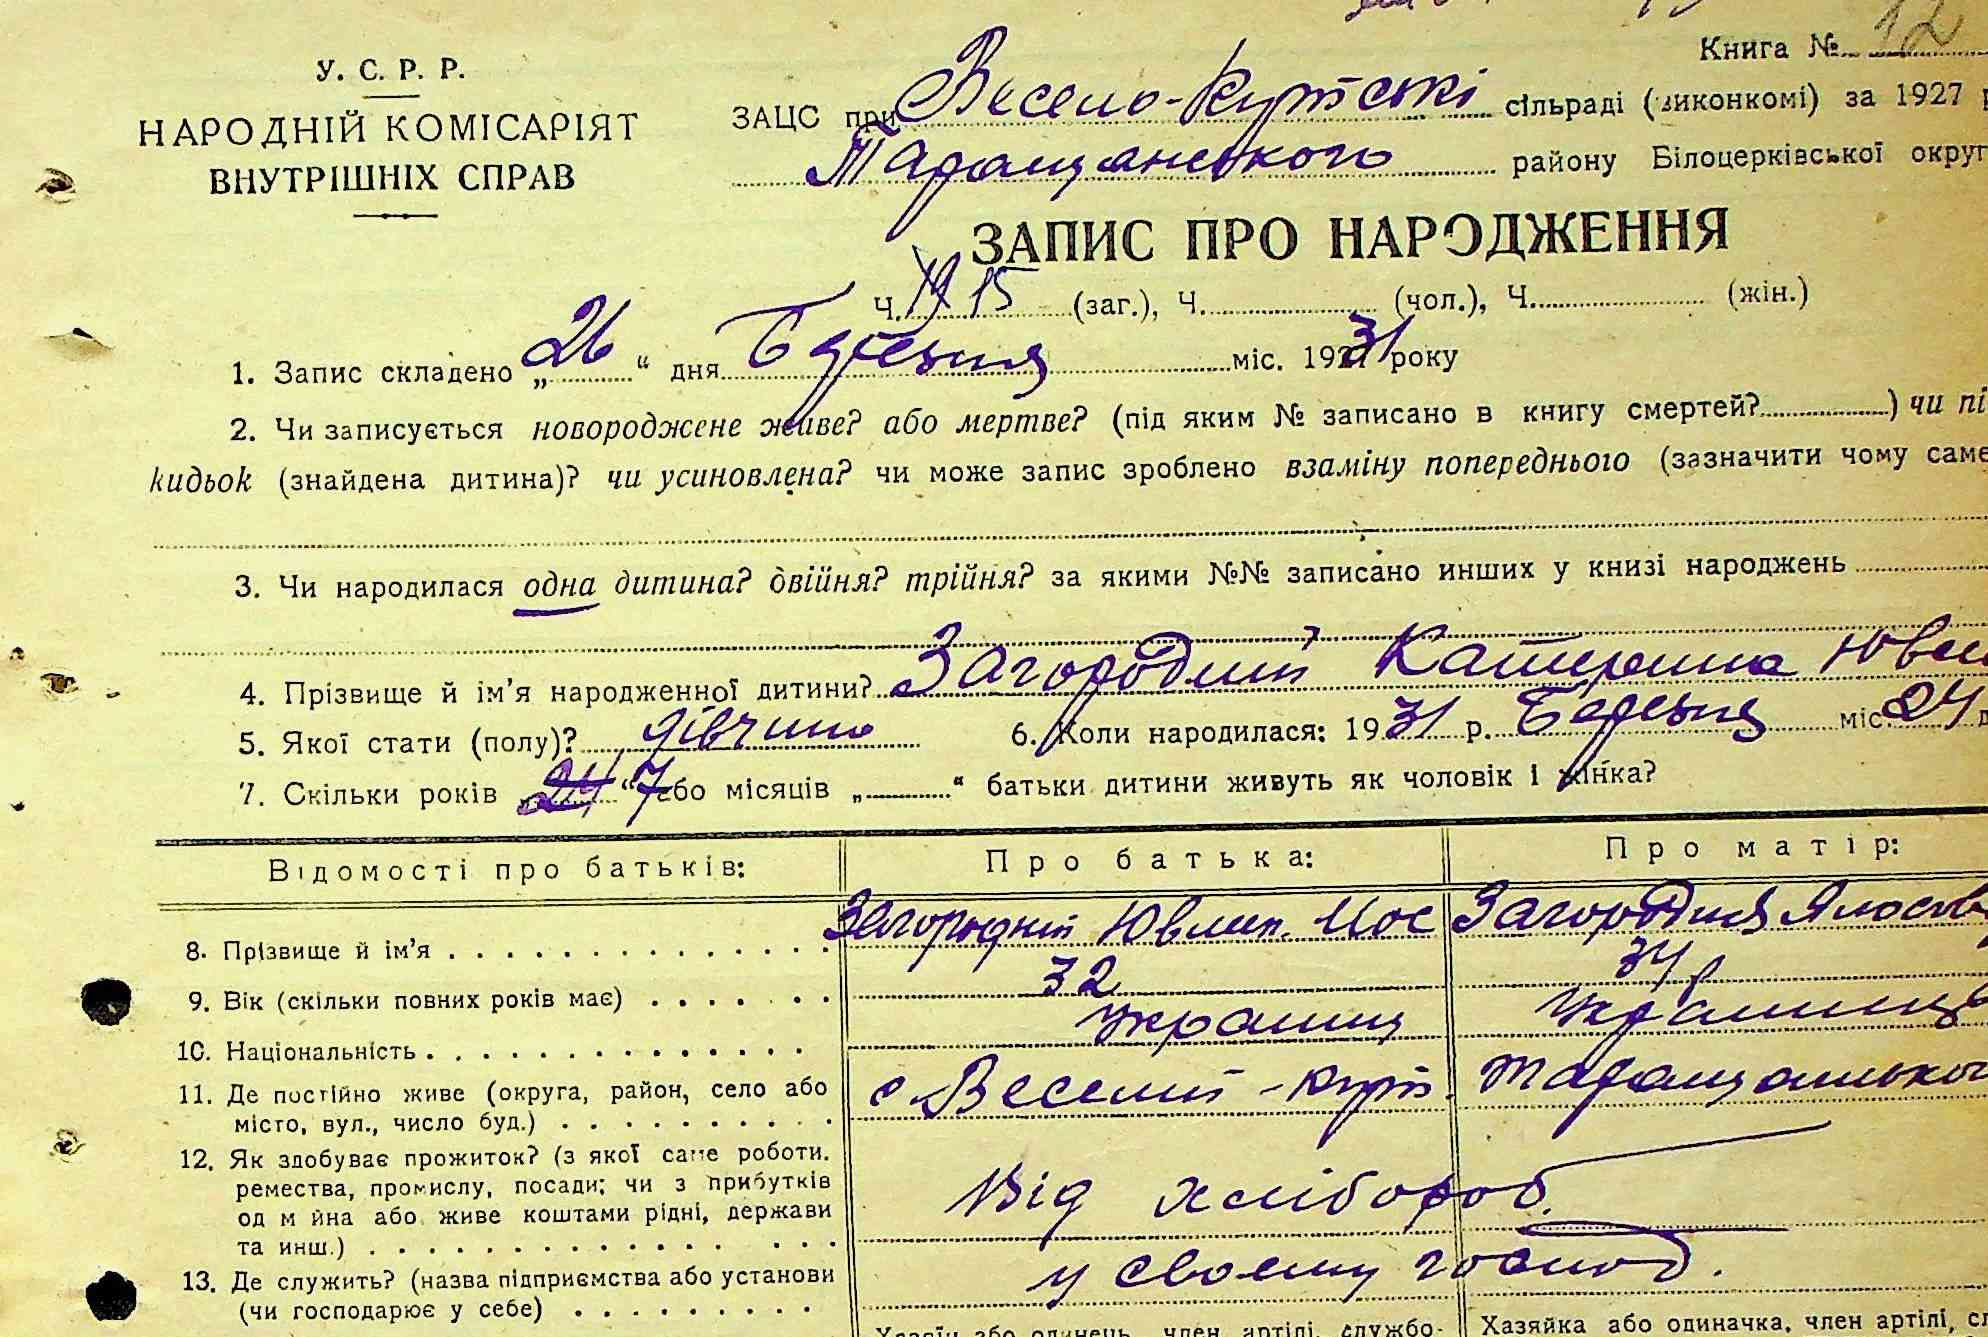 Книга № 12
У. С. Р. Р.
НАРОДНІЙ КОМІСАРІЯТ
ВНУТРІШНІХ СПРАВ
ЗАЦС при Весело-Кутські сільраді (виконкомі) за 1927 р
Таращанського району Білоцерківської округ
ЗАПИС ПРО НАРОДЖЕННЯ
Ч. 15 (заг.), Ч. (чол.), Ч. (жін.)
1. Запис складено „26“ дня Березня міс. 1931 року
2. Чи записується новороджене живе? або мертве? (під яким № записано в книгу смертей? ) чи пі
кидьок (знайдена дитина)? чи усиновлена? чи може запис зроблено взаміну попереднього (зазначити чому саме
3. Чи народилася одна дитина? двійня? трійня? за якими №№ записано инших у книзі народжень
4. Прізвище й ім’я народженної дитини? Загородній Катерина
5. Якої стати (полу)? дівчина 6. Коли народилася: 1931 р. Березня міс. 24 д
7. Скільки років „24“ 7 або місяців „ “ батьки дитини живуть як чоловік і жінка?
Відомості про батьків: Про батька: Про матір:
8. Прізвище й ім’я Загородній Йос Загородня
9. Вік (скільки повних років має) 32 34 р
10. Національність україниц
11. Де постійно живе (округа, район, село або с Веселий-Кут. Таращанського
місто, вул., число буд.)
12. Як здобуває прожиток? (з якої саме роботи.
ремества, промислу, посади; чи з прибутків Від хлібороб.
од м йна або живе коштами рідні, держави
та инш.)
13. Де служить? (назва підприємства або установи у своему господ.
(чи господарює у себе)
Хазяїн або одинець, член артілі, службо- Хазяйка або одиначка, член артілі, с